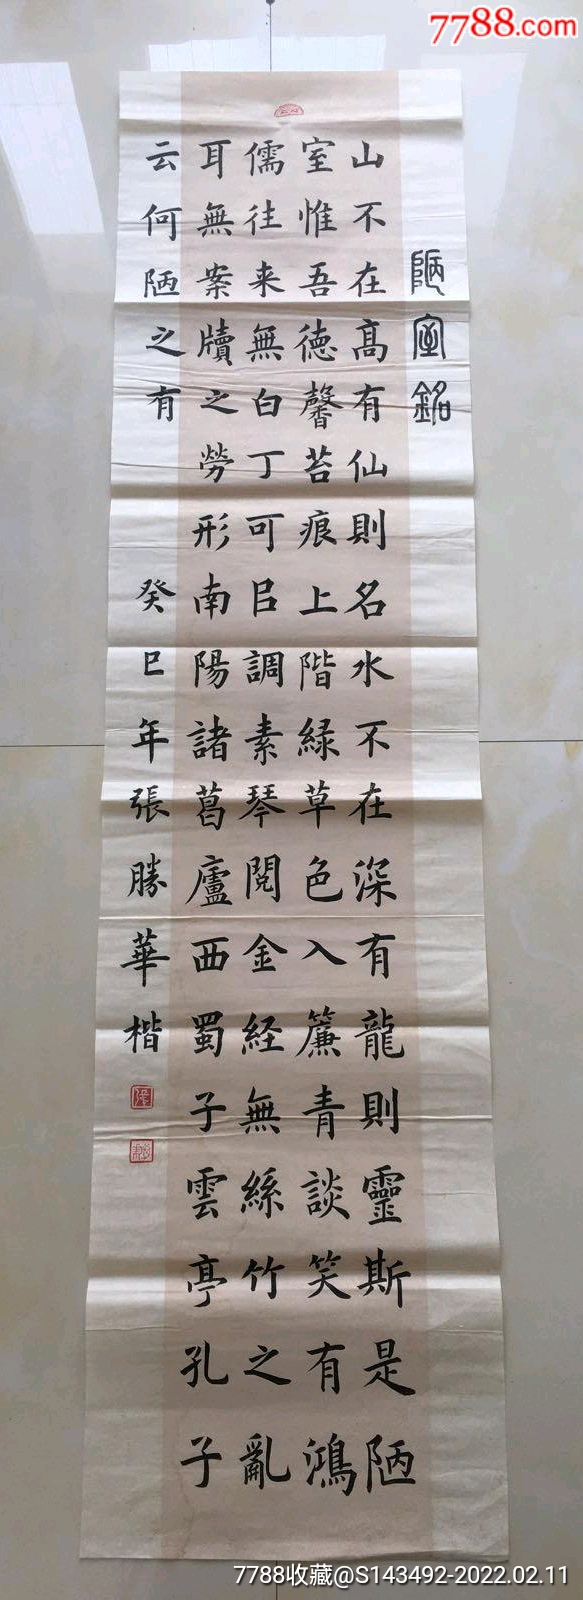 7788.com
陋室銘
山不在高有仙則名水不在深有龍則靈斯是陋
室惟吾德馨苔痕上階緑草色入簾青談笑有鴻
儒往来無白丁可㠯調素琴閱金経無絲竹之亂
耳無案牘之勞形南陽諸葛廬西蜀子雲亭孔子
云何陋之有
癸巳年張勝華楷
7788收藏@S143492-2022.02.11